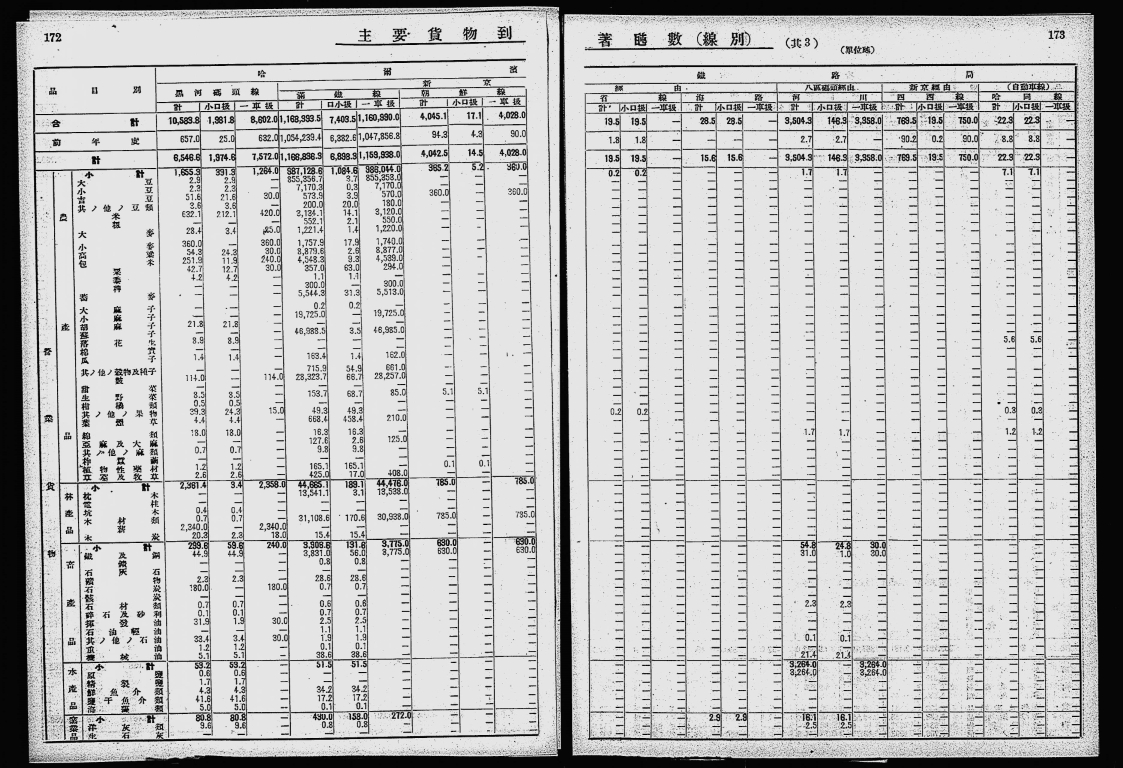 172
主要貨物到
哈爾濱
品目別
黑河碼頭線
滿鐵線
新京
朝鮮線
計 小口扱 一車扱 計 口小扱 一車扱 計 小口扱 一車扱
合計 10,583.8 1,981.8 8,602.0 1,168,933.5 7,403.5 1,160,890.0 4,045.1 17.1 4,028.0
前年度 657.0 25.0 632.0 1,054,239.4 6,382.6 1,047,856.8 94.3 4.3 90.0
計 6,546.6 1,974.6 7,572.0 1,166,836.9 6,898.9 1,159,938.0 4,042.5 14.5 4,028.0
小計 1,655.3 391.3 1,264.0 987,128.6 1,084.6 986,044.0 365.2 5.2 360.0
大豆 2.9 2.9 — 855,356.7 3.7 855,353.0
小豆 2.3 2.3 — 7,170.3 0.3 7,170.0
吉豆 51.6 21.6 30.0 573.9 3.9 570.0 360.0 — 360.0
其ノ他ノ豆類 3.6 3.6 — 200.0 20.0 180.0
米 632.1 212.1 420.0 3,134.1 14.1 3,120.0
粗 — — — 552.1 2.1 550.0
大麥 28.4 3.4 25.0 1,221.4 1.4 1,220.0
小麥 360.0 — 360.0 1,757.9 17.9 1,740.0
高粱 54.3 24.3 30.0 8,879.6 2.6 8,877.0
包米 251.9 11.9 240.0 4,548.3 9.3 4,539.0
粟 42.7 12.7 30.0 357.0 63.0 294.0
黍 4.2 4.2 — 1.1 1.1 —
稗 — — — 300.0 — 300.0
蕎麥 — — — 5,544.3 31.3 5,513.0
大麻子 — — — 0.2 0.2 —
小麻子 — — — 19,725.0 — 19,725.0
胡麻子 21.8 21.8 —
蘇子 — — — 46,988.5 3.5 46,985.0
落花生 8.9 8.9 —
棉實
瓜子 1.4 1.4 — 163.4 1.4 162.0
其ノ他ノ穀物及種子 — — — 715.9 54.9 661.0
麩 114.0 — 114.0 28,323.7 66.7 28,257.0
甜菜
生野菜 8.5 8.5 — 153.7 68.7 85.0 5.1 5.1 —
柑橘類 0.5 0.5 —
其ノ他ノ果物 39.3 24.3 15.0 49.3 49.3 —
葉煙草 4.4 4.4 — 668.4 458.4 210.0
綿類 18.0 18.0 — 16.3 16.3 —
亞麻及大麻 — — — 127.6 2.6 125.0
其ノ他ノ麻類 0.7 0.7 — 9.8 9.8 —
柞蠶繭
植物性藥材 1.2 1.2 — 165.1 165.1 — 0.1 0.1 —
草莚及牧草 2.6 2.6 — 425.0 17.0 408.0
小計 2,361.4 3.4 2,358.0 44,665.1 189.1 44,476.0 785.0 — 785.0
枕木 — — — 13,541.1 3.1 13,538.0
電柱
坑木 0.4 0.4 —
木材類 0.7 0.7 — 31,108.6 170.6 30,938.0 785.0 — 785.0
薪 2,340.0 — 2,340.0
木炭 20.3 2.3 18.0 15.4 15.4 —
小計 299.6 59.6 240.0 3,906.6 131.6 3,775.0 630.0 — 630.0
鐵及鋼 44.9 44.9 — 3,831.0 56.0 3,775.0 630.0 — 630.0
銑 — — — 0.8 0.8 —
石灰石
礦物 2.3 2.3 — 28.6 28.6 —
石炭 180.0 — 180.0 0.7 0.7 —
骸炭
石材類 0.7 0.7 — 0.6 0.6 —
碎石及砂利 0.1 0.1 — 0.7 0.7 —
揮發油 31.9 1.9 30.0 2.5 2.5 —
石油輕油 — — — 1.1 1.1 —
其ノ他ノ石油 33.4 3.4 30.0 1.9 1.9 —
重油 1.2 1.2 — 0.1 0.1 —
機械油 5.1 5.1 — 38.6 38.6 —
小計 53.2 53.2 — 51.5 51.5 —
原鹽 0.6 0.6 —
精製鹽 1.7 1.7 —
鮮魚介類 4.3 4.3 — 34.2 34.2 —
鹽干魚介類 41.6 41.6 — 17.2 17.2 —
海藻類 5.0 5.0 — 0.1 0.1 —
小計 80.8 80.8 — 430.0 158.0 272.0
洋灰類 9.6 9.6 — 0.8 0.8 —
生石灰
普業貨物
農產品
林產品
畜產品
水產品
173
著噸數(線別)
(共3)
(單位噸)
鐵路局
經由
省線
海路
八區碼頭經由
河川
新京經由
四西線
(自動車線)
哈同線
計 小口扱 一車扱 計 小口扱 一車扱 計 小口扱 一車扱 計 小口扱 一車扱 計 小口扱 一車扱
19.5 19.5 — 28.5 28.5 — 3,504.3 146.3 3,358.0 769.5 19.5 750.0 22.3 22.3 —
1.8 1.8 — — — — 2.7 2.7 — 90.2 0.2 90.0 8.8 8.8 —
19.5 19.5 — 15.6 15.6 — 3,504.3 146.3 3,358.0 769.5 19.5 750.0 22.3 22.3 —
0.2 0.2 — — — — 1.7 1.7 — — — — 7.1 7.1 —
5.6 5.6
0.2 0.2 0.3 0.3
1.7 1.7 1.2 1.2
54.8 24.8 30.0
31.0 1.0 30.0
2.3 2.3
0.1 0.1
21.4 21.4
3,264.0 3,264.0
3,264.0 3,264.0
2.9 2.9 16.1 16.1
2.5 2.5